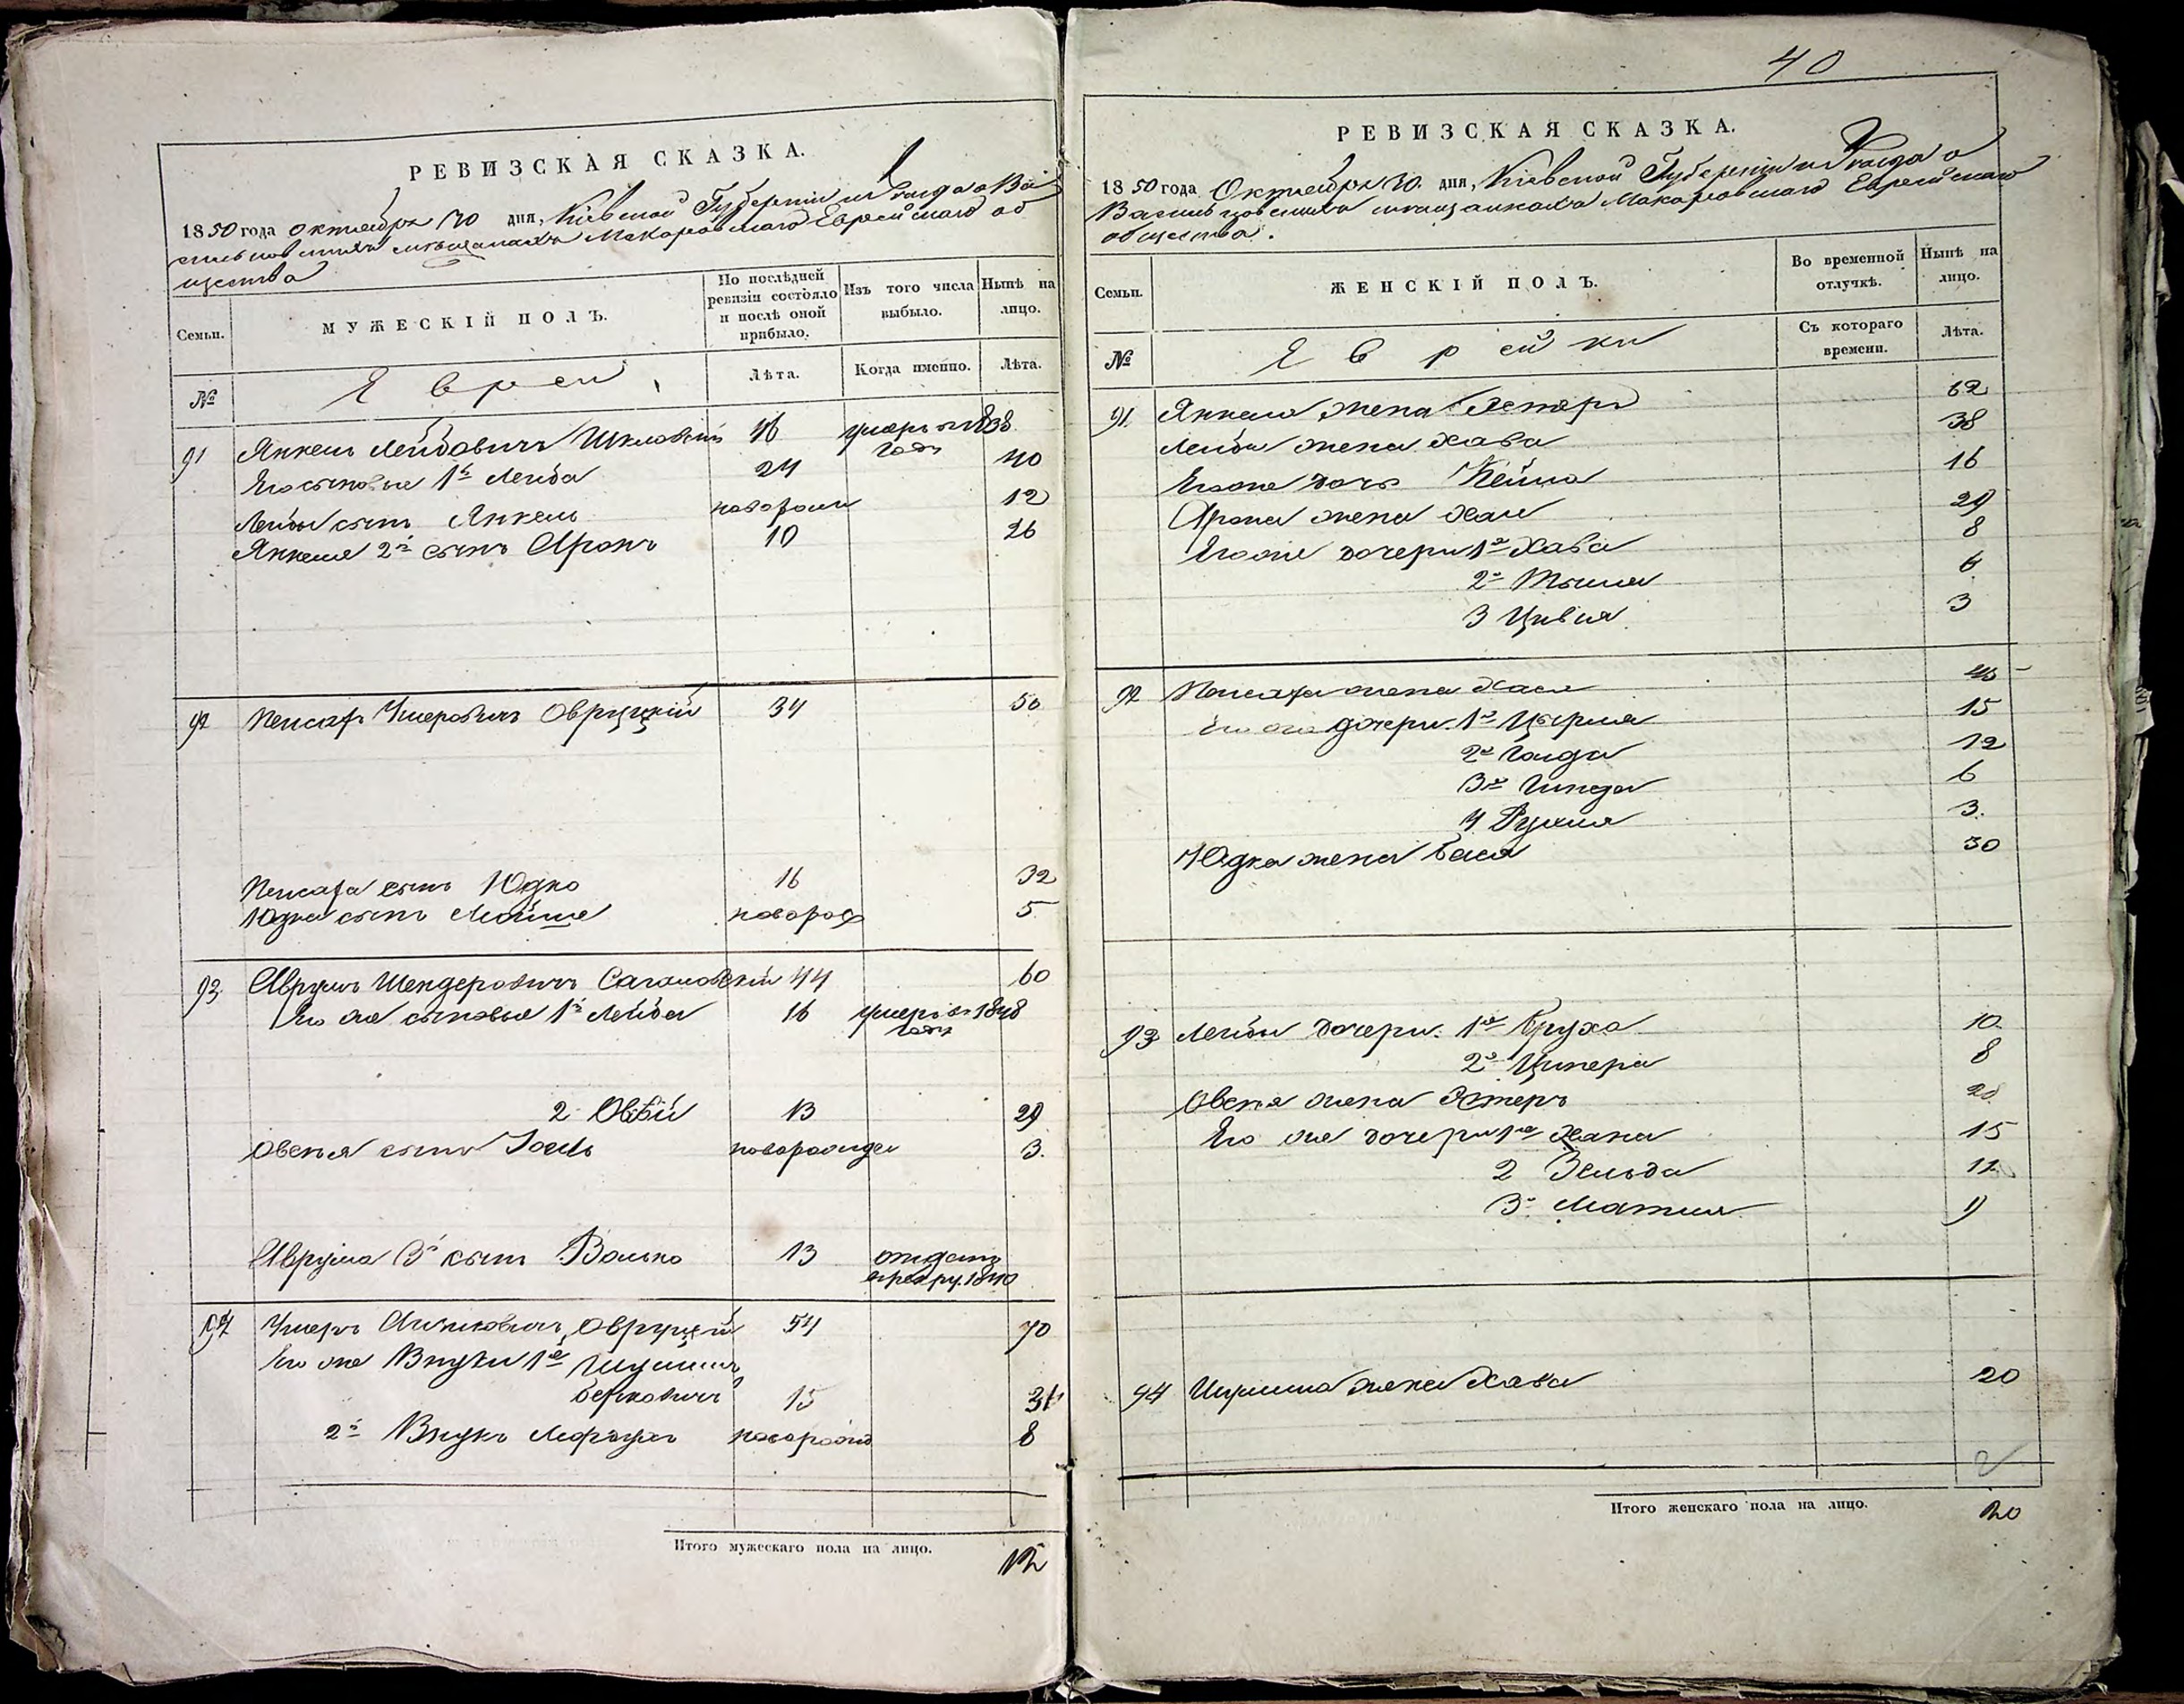 РЕВИЗСКАЯ СКАЗКА.
1850 года Октября 30 дня, Кіевской Губерніи и Уезда о Ва
сильковскихъ мѣщанахъ Макаровскаго Еврейскаго об
щества
Семьи.
МУЖЕСКІЙ ПОЛЪ.
По послѣдней ревизіи состояло и послѣ оной прибыло.
Изъ того числа выбыло.
Нынѣ на лицо.
№
Евреи
Лѣта.
Когда именно.
Лѣта.
91 Янкель Лейбовичъ Шкловскій 46 умеръ въ 1838 годѣ
Его сыновья 1й Лейба 24 40
Лейбы сынъ Янкель новорожд 12
Янкеля 2й сынъ Аронъ 10 26
92 Пейсахъ Умеровичъ Овруцкій 34 50
Пейсаха сынъ Юдко 16 32
Юдки сынъ Мойше новорож 5
93 Аврумъ Шендеровичъ 44 60
Его же сыновья 1й Лейба 16 умеръ въ 1848 годѣ
2 Овсѣй 13 29
Овсея сынъ Іосель новорожден 3.
Аврума 3й сынъ Волько 13 отданъ в рекру. 1840
94 Умеръ Овруцкій 54 70
Его же Внуки 1й
Берковичъ 15 31
2й Внукъ новорожд 8
Итого мужескаго пола на лицо. 12
40
РЕВИЗСКАЯ СКАЗКА.
1850 года Октября 30. дня, Кіевской Губерніи и Уезда о
Васильковскихъ мѣщанкахъ Макаровскаго Еврейскаго
общества.
Семьи.
ЖЕНСКІЙ ПОЛЪ.
Во временной отлучкѣ.
Нынѣ на лицо.
№
Еврейки
Съ котораго времени.
Лѣта.
91. Янкеля жена Эстеръ 62
Лейбы жена Хава 38
Его же дочь Кейла 16
Арона жена Хая 29
Его же дочери 1я Хава 8
2я 6
3 Цивья 3
92 Пейсаха жена Хася 45
Его же дочери. 1я Цырля 15
2я Голда 12
3я Гинда 6
4 Рухля 3.
Юдка жена Бася 30
93 Лейбы дочери. 1я Бруха 10.
2я Ципера 8
Овсея жена Эстеръ 28
Его же дочери 1я Хана 15
2 Зельда 11
3я 9
94 жена Хава 20
Итого женскаго пола на лицо. 20